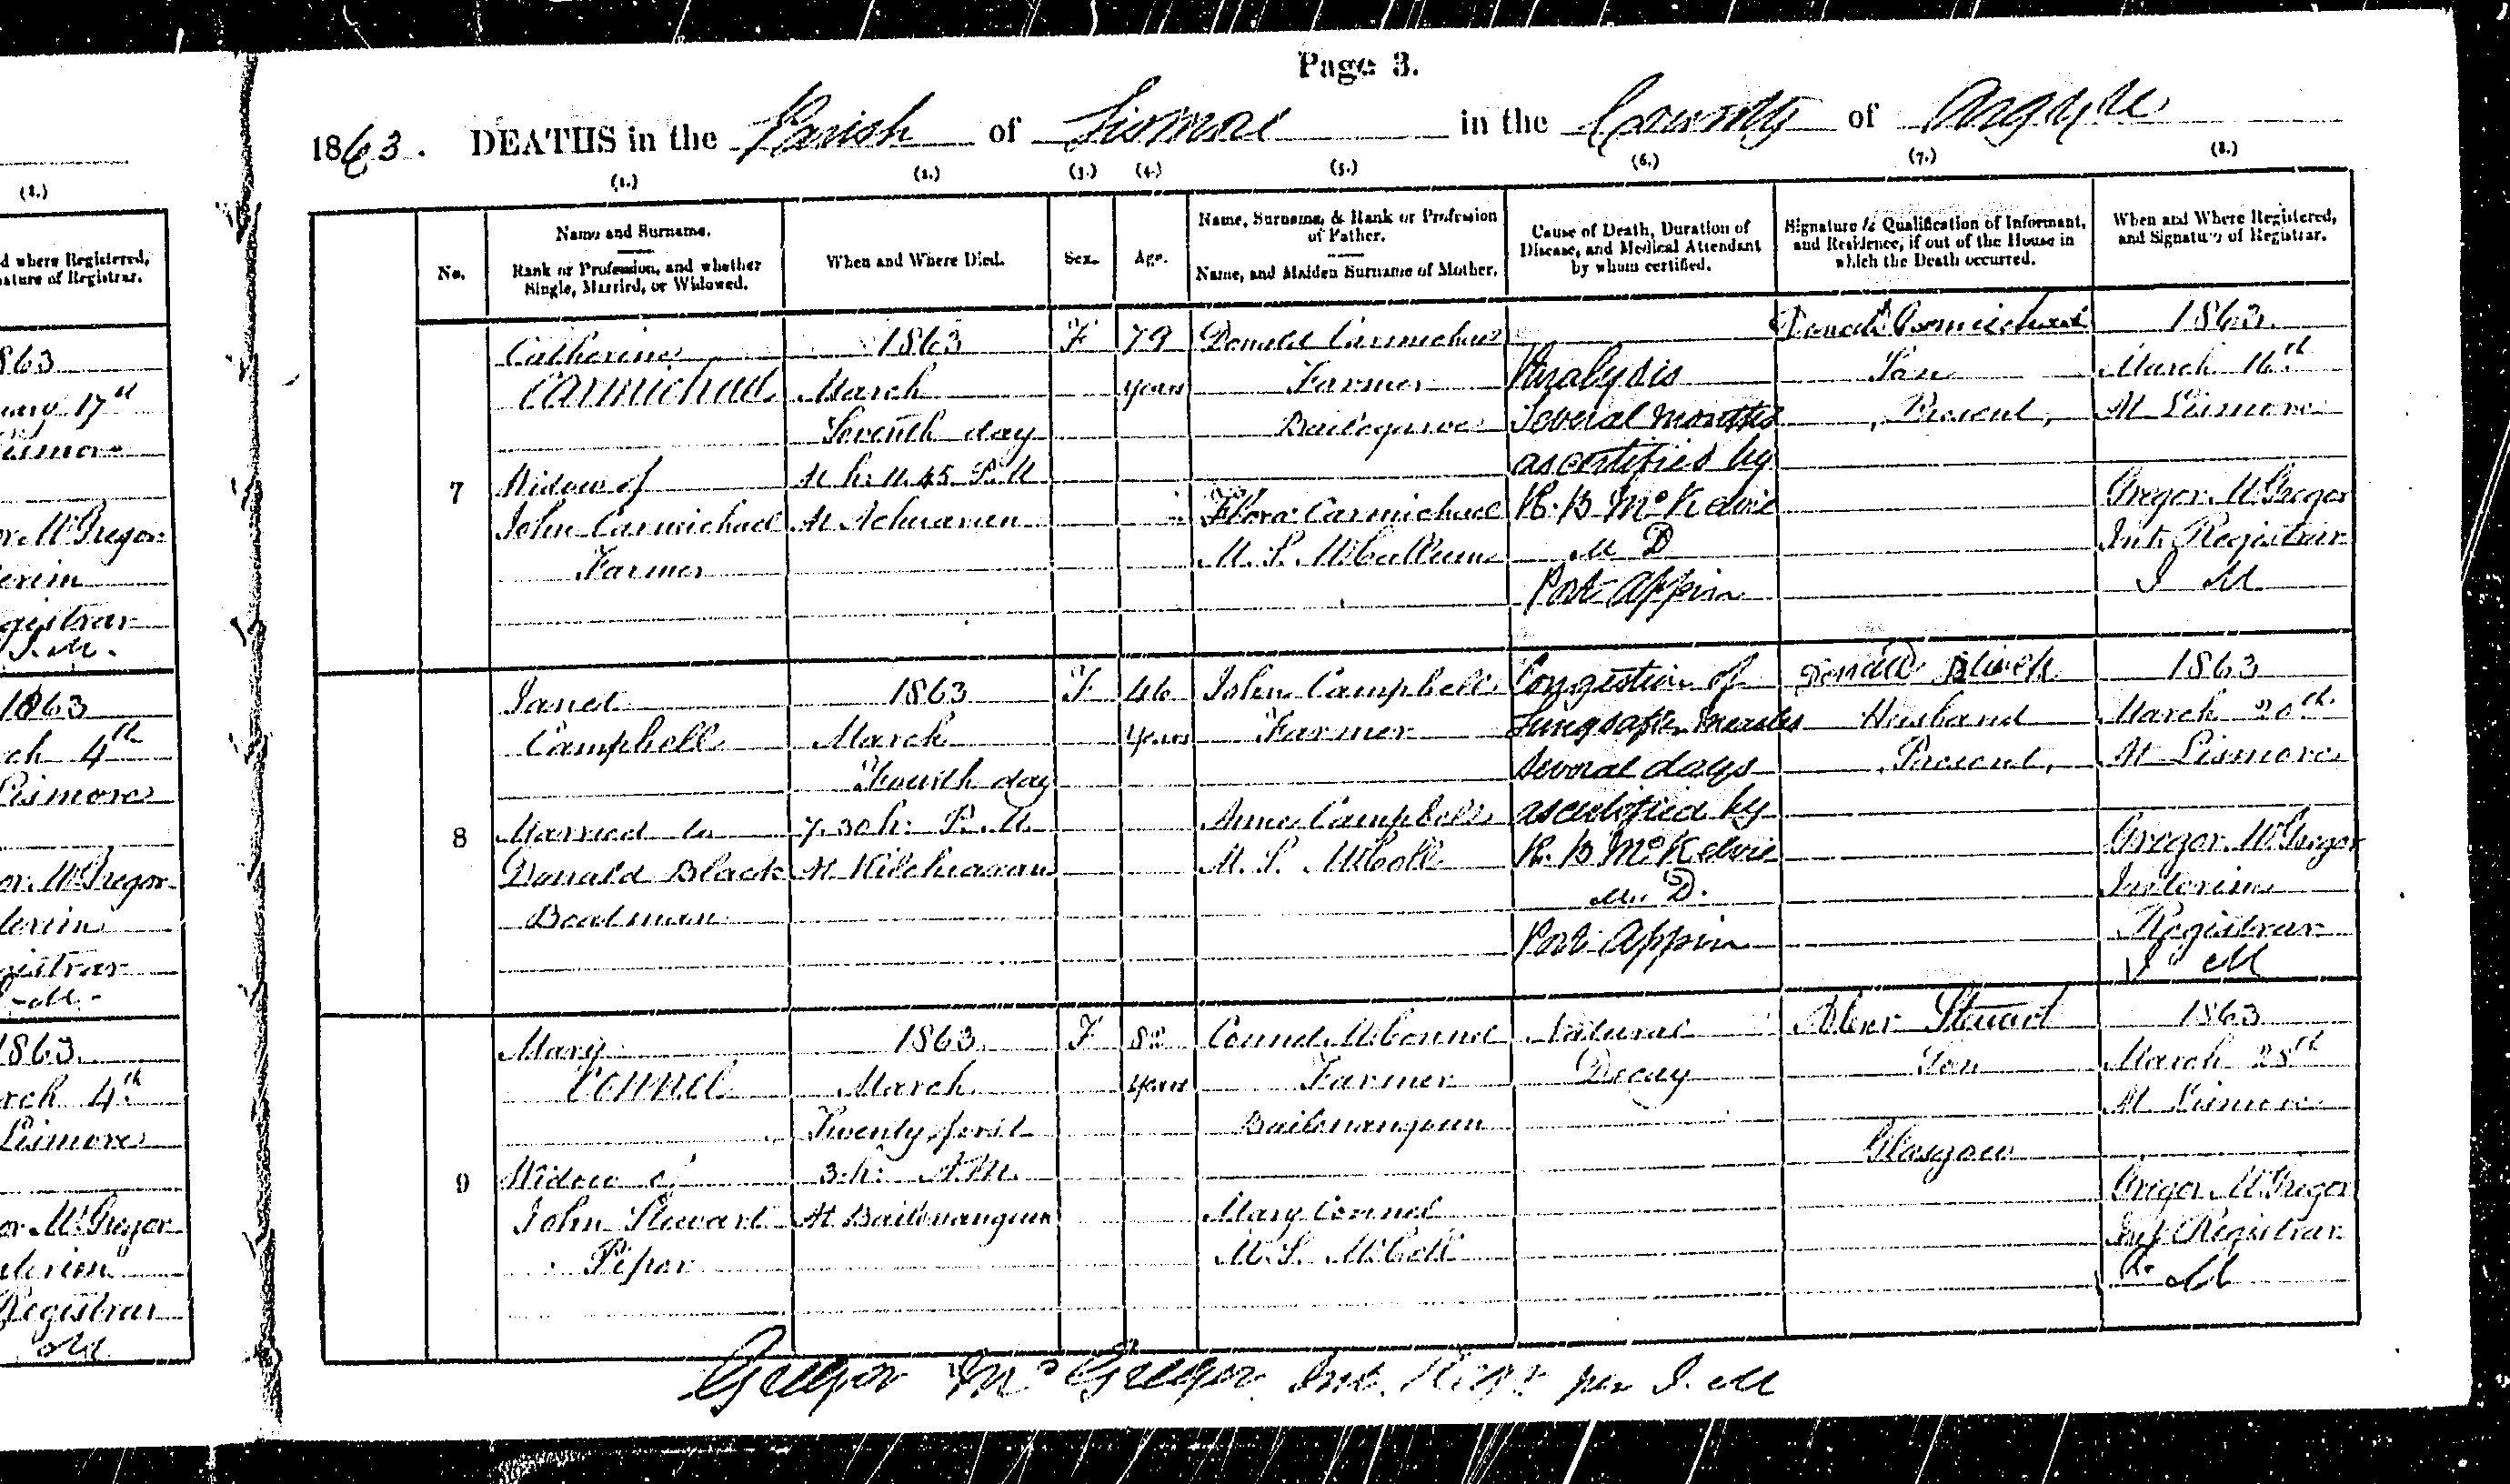 Page 3.
1863. DEATHS in the Parish of Lismore in the County of Argyle
(8.)
(1.) (2.) (3.) (4.) (5.) (6.) (7.) (8.)
d where Registered,
nature of Registrar.
No.
Name and Surname.
Rank or Profession, and whether
Single, Married, or Widowed.
When and Where Died.
Sex.
Age.
Name, Surname, & Rank or Profession
of Father.
Name, and Maiden Surname of Mother.
Cause of Death, Duration of
Disease, and Medical Attendant
by whom certified.
Signature & Qualification of Informant,
and Residence, if out of the House in
which the Death occurred.
When and Where Registered,
and Signature of Registrar.
863
uary 17th
ismore
or McGregor
terim
gistrar
J. M.
7
Catherine
Carmichael
Widow of
John Carmichael
Farmer
1863
March
Seventh day
11 h. 45 P.M
At Achnacroish
F
79
years
Donald Carmichael
Farmer
Bailegarve
Flora Carmichael
M. S. McCallum
Paralysis
Several months
as certified by
R. B McKelvie
M D
Port Appin
Donald Carmichael
Son
Present,
1863
March 16th
At Lismore
Gregor McGregor
Int. Registrar
J M
1863
ch 4th
Lismore
or McGregor
terim
gistrar
J. M.
8
Janet
Campbell
Married to
Donald Black
Boatman
1863
March
Fourth day
7.30 h. P.M
At Kilcheran
F
46
years
John Campbell
Farmer
Anne Campbell
M. S. McColl
Congestion of
Lungs after measles
Several days
as certified by
R. B McKelvie
M. D.
Port Appin
Donald Black
Husband
Present,
1863
March 20th
At Lismore
Gregor McGregor
Interim
Registrar
J M
1863
rch 4th
Lismore
or McGregor
terim
Registrar
M
9
Mary
Connel
Widow of
John Stewart
Piper
1863
March
Twenty first
3 h. A.M.
At Bailenangeun
F
82
years
Connel McConnel
Farmer
Bailenangeun
Mary Connel
M. S. McColl
Natural
Decay
Alexr Stewart
Son
Glasgow
1863
March 28th
At Lismore
Gregor McGregor
Int. Registrar
M
Gregor McGregor Int. Regr. per J. M